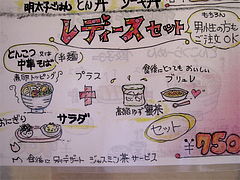 明太子ごはん とん丼 ソース丼
レディースセット
もちろん
男性の方も
ご注文OK
とんこつ 又は
中華そば (半麺)
煮卵トッピング
プラス
食後にとっても おいしい
ブリュレ
おにぎり
サラダ
セット
¥750
ジャスミン茶 サービス